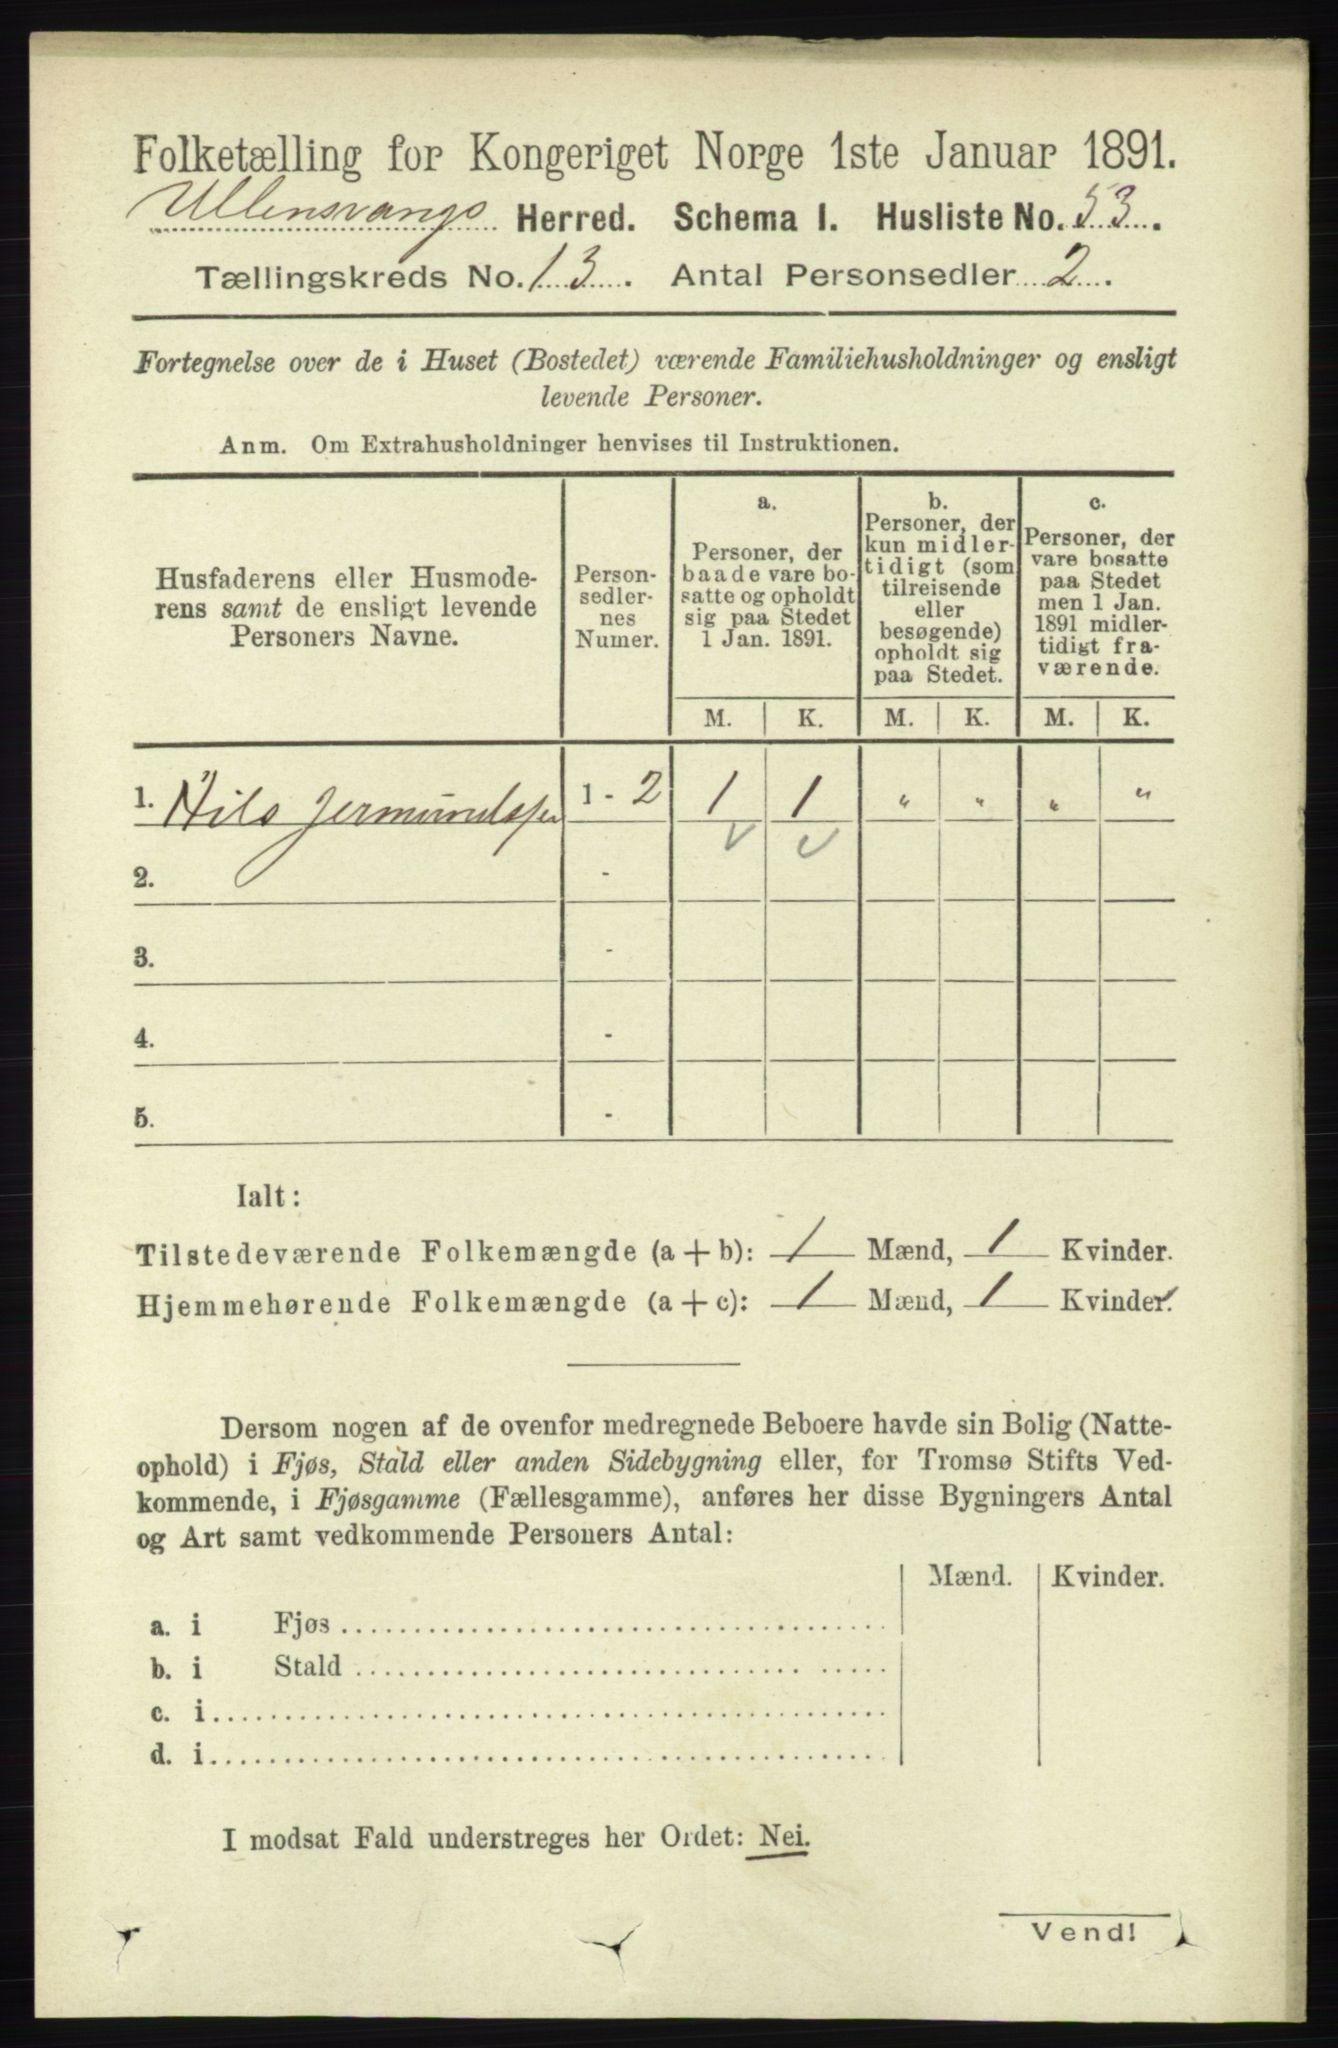 Folketælling for Kongeriget Norge 1ste Januar 1891.
Ullensvangs Herred. Schema I. Husliste No. 53.
Tællingskreds No. 13. Antal Personsedler 2.
Fortegnelse over de i Huset (Bostedet) værende Familiehusholdninger og ensligt
levende Personer.
Anm. Om Extrahusholdninger henvises til Instruktionen.
Husfaderens eller Husmode-
rens samt de ensligt levende
Personers Navne.
Person-
sedler-
nes
Numer.
a.
Personer, der
baade vare bo-
satte og opholdt
sig paa Stedet
1 Jan. 1891.
b.
Personer, der
kun midler-
tidigt (som
tilreisende
eller
besøgende)
opholdt sig
paa Stedet.
c.
Personer, der
vare bosatte
paa Stedet
men 1 Jan.
1891 midler-
tidigt fra-
værende.
M. K. M. K. M. K.
1. Nils Jermundssen 1 - 2 1 1 " " " "
2. -
3. -
4. -
5. -
Ialt:
Tilstedeværende Folkemængde (a + b): 1 Mænd, 1 Kvinder.
Hjemmehørende Folkemængde (a + c): 1 Mænd, 1 Kvinder.
Dersom nogen af de ovenfor medregnede Beboere havde sin Bolig (Natte-
ophold) i Fjøs, Stald eller anden Sidebygning eller, for Tromsø Stifts Ved-
kommende, i Fjøsgamme (Fællesgamme), anføres her disse Bygningers Antal
og Art samt vedkommende Personers Antal:
Mænd. Kvinder.
a. i Fjøs
b. i Stald
c. i
d. i
I modsat Fald understreges her Ordet: Nei.
Vend!